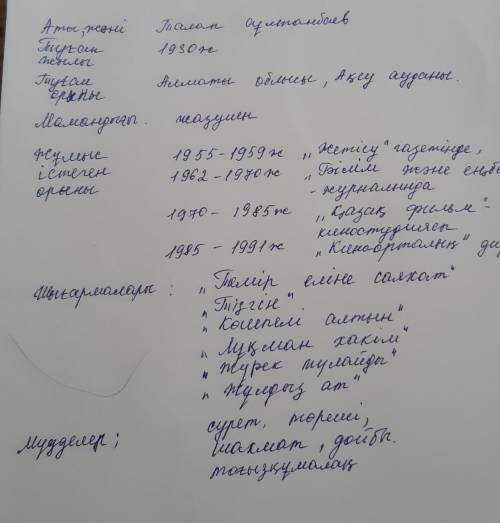 Аты, жөні Талап Сұлтанбаев
Туған жылы 1930ж
Туған орыны Алматы облысы, Ақсу ауданы.
Мамандығы. жазушы
Жұмыс істеген орыны 1955-1959ж „Жетісу" газетінде,
1962-1970ж „Білім және еңбе
- журналында
1970-1985ж „Қазақ фильм"-
киностудиясы
1985-1991ж „Киноорталық" ди
Шығармалары: „Темір еліне саяхат"
„Тізгін"
„Көшпелі алтын"
„Луқман хакім"
„Жүрек жұлайды"
„Жұлдыз ат"
Мүдделер; сурет, төреші,
шахмат, дойбы.
тоғызқұмалақ